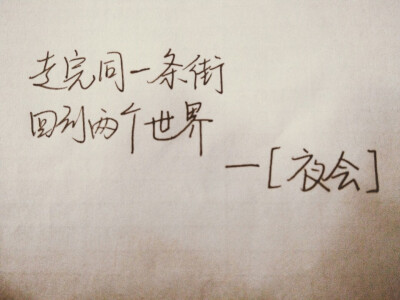 走完同一条街
回到两个世界
一[夜会]